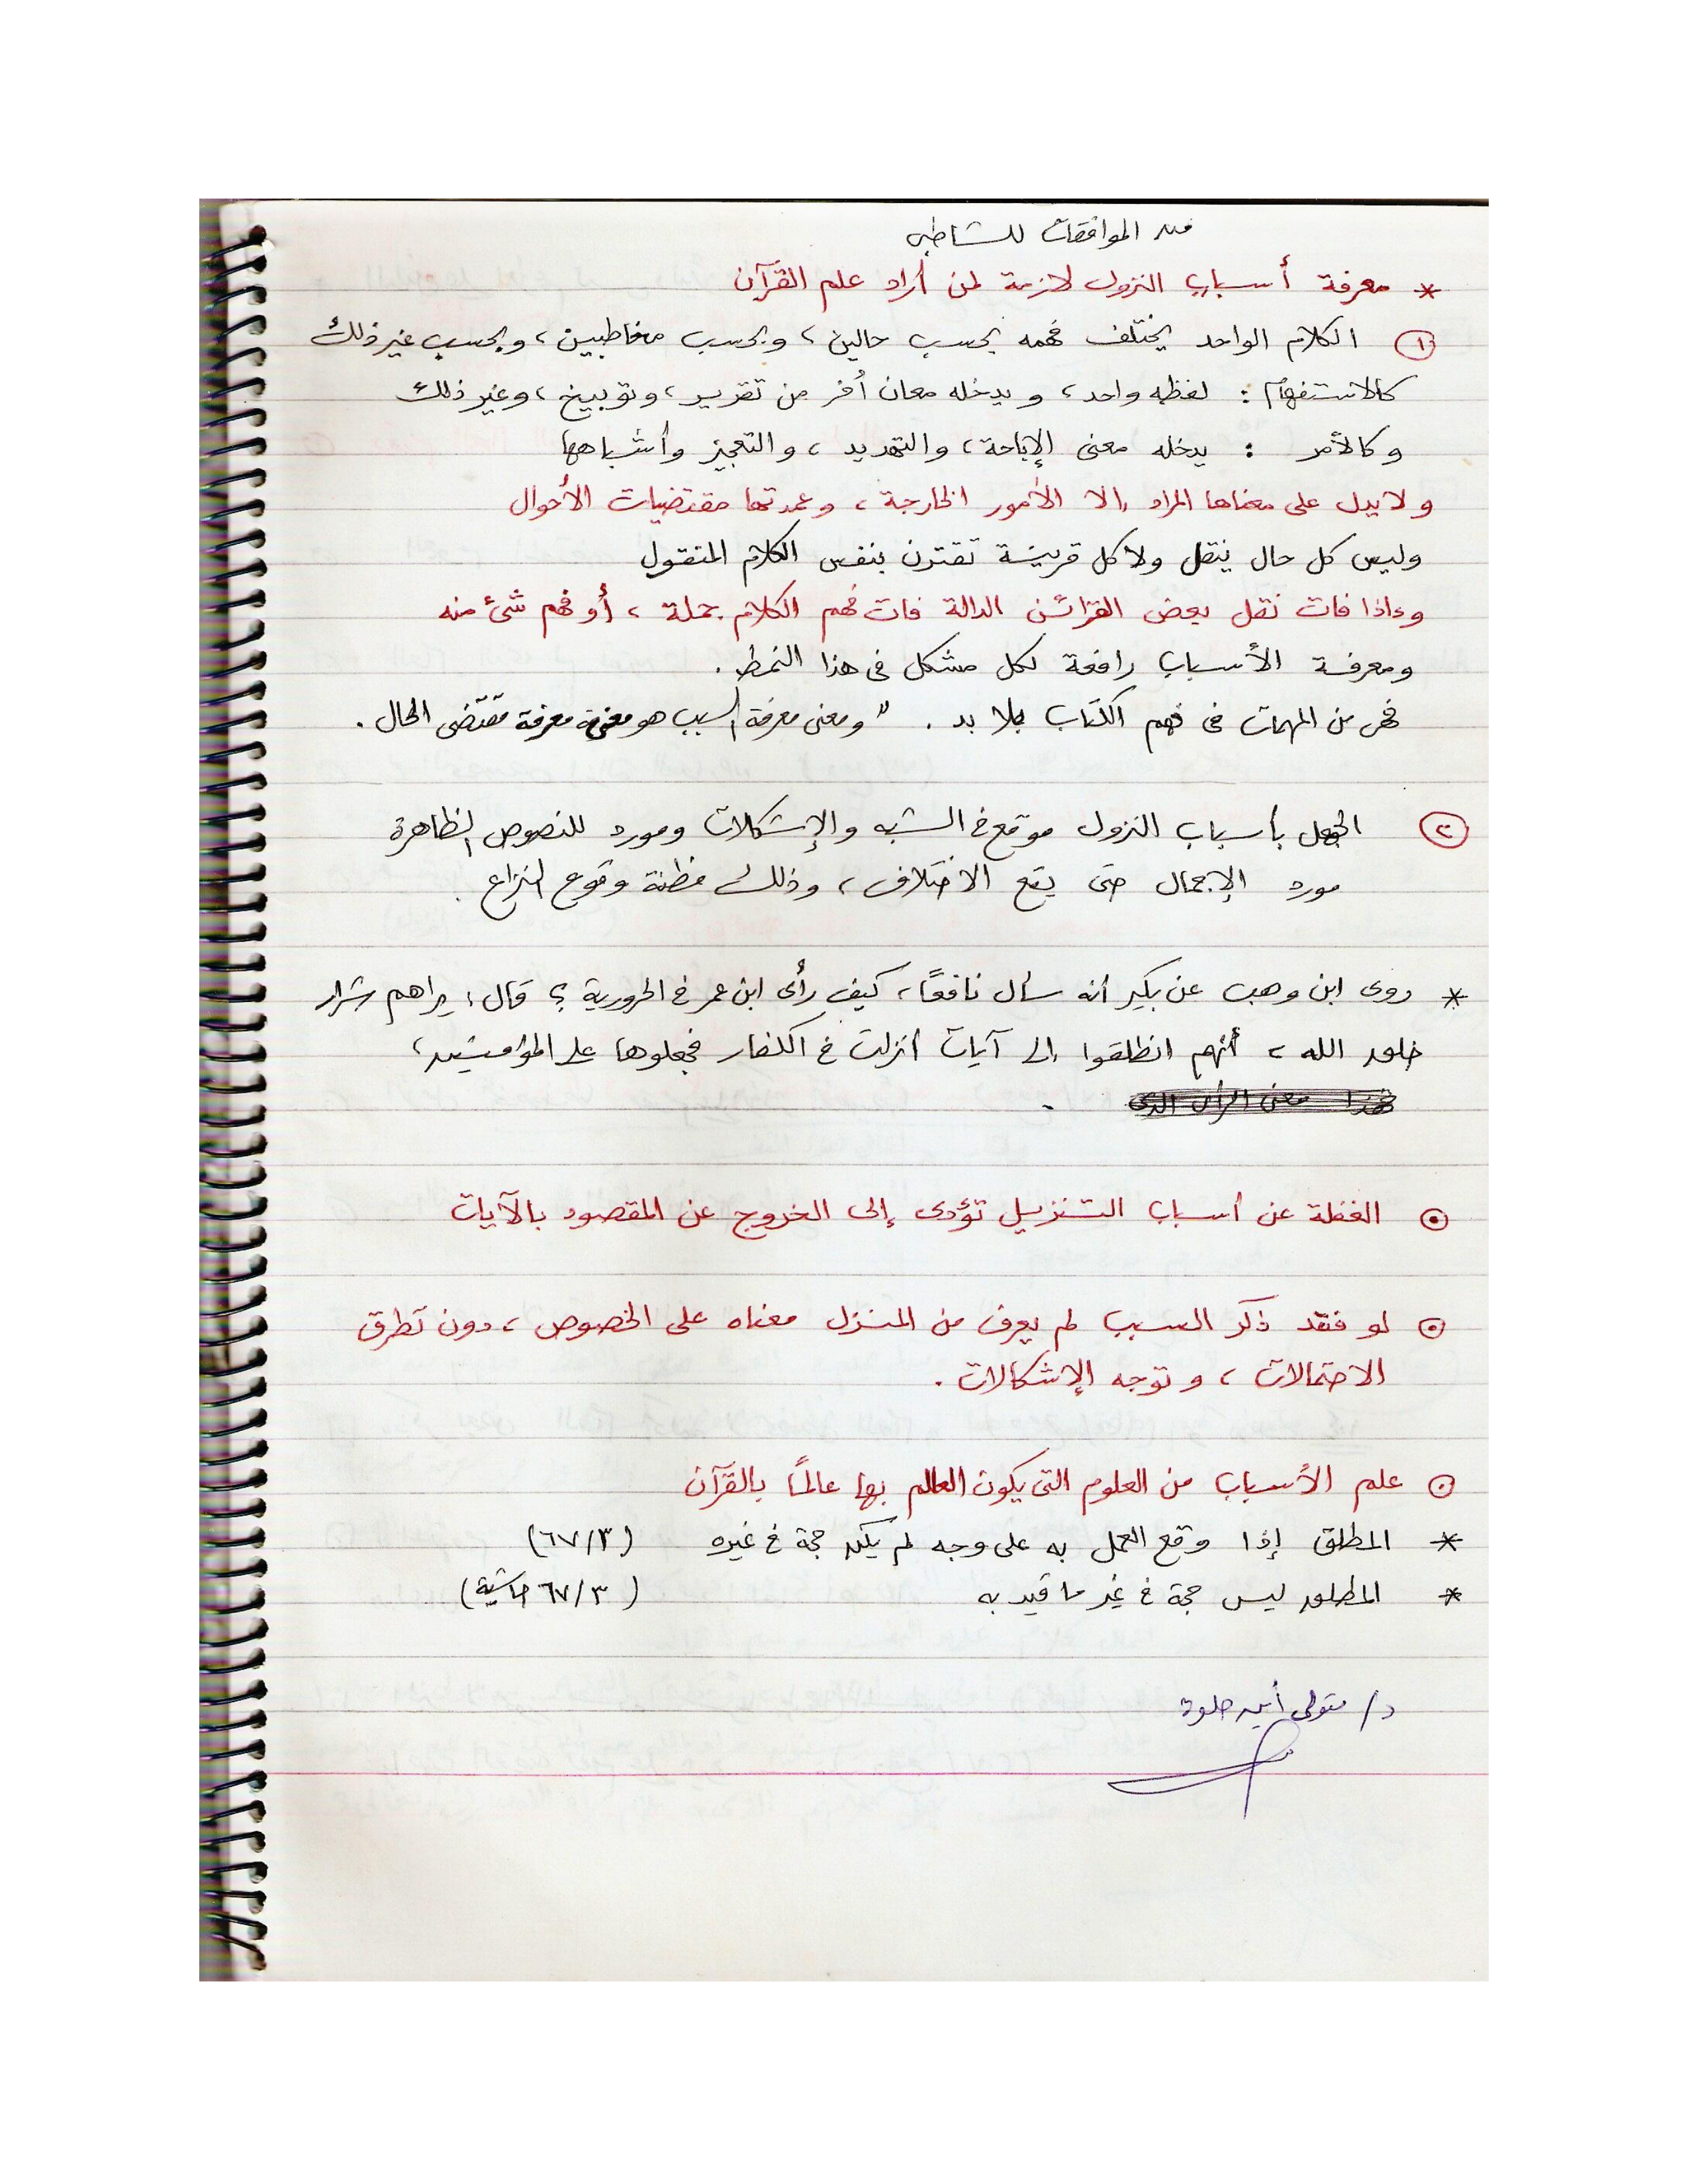 من الموافقات للشاطبي
* معرفة أسباب النزول لازمة لمن أراد علم القرآن
① الكلام الواحد يختلف فهمه بحسب حالين، وبحسب مخاطبين، وبحسب غير ذلك
كالاستفهام : لفظه واحد، ويدخله معان أخر من تقرير، وتوبيخ، وغير ذلك
وكالأمر : يدخله معنى الإباحة، والتهديد، والتعجيز وأشباهها
ولا يدل على معناها المراد إلا الأمور الخارجة، وعمدتها مقتضيات الأحوال
وليس كل حال ينقل ولا كل قرينة تقترن بنفس الكلام المنقول
وإذا فات نقل بعض القرائن الدالة فات فهم الكلام جملة، أو فهم شئ منه
ومعرفة الأسباب رافعة لكل مشكل فى هذا النمط .
فهى من المهمات فى فهم الكتاب بلا بد . " ومعنى معرفة السبب هو معنى معرفة مقتضى الحال .
② الجهل بأسباب النزول موقع في الشبه والإشكالات ومورد للنصوص الظاهرة
مورد الإجمال حتى يقع الاختلاف، وذلك مظنة وقوع النزاع .
* روى ابن وهب عن بكير أنه سأل نافعًا، كيف رأى ابن عمر في الحرورية؟ قال: يراهم شرار
خلق الله، أنهم انطلقوا إلى آيات أنزلت في الكفار فجعلوها على المؤمنين،
⊙ الغفلة عن أسباب التنزيل تؤدى إلى الخروج عن المقصود بالآيات
⊙ لو فقد ذكر السبب لم يعرف من المنزل معناه على الخصوص، دون تطرق
الاحتمالات، وتوجه الإشكالات .
⊙ علم الأسباب من العلوم التى يكون العالم بها عالمًا بالقرآن
* المطلق إذا وقع العمل به على وجه لم يكن حجة في غيره (٦٧/٣)
* المطلق ليس حجة في غير ما قيد به (٦٧/٣ حاشية)
د/ متولى أمين حلوة